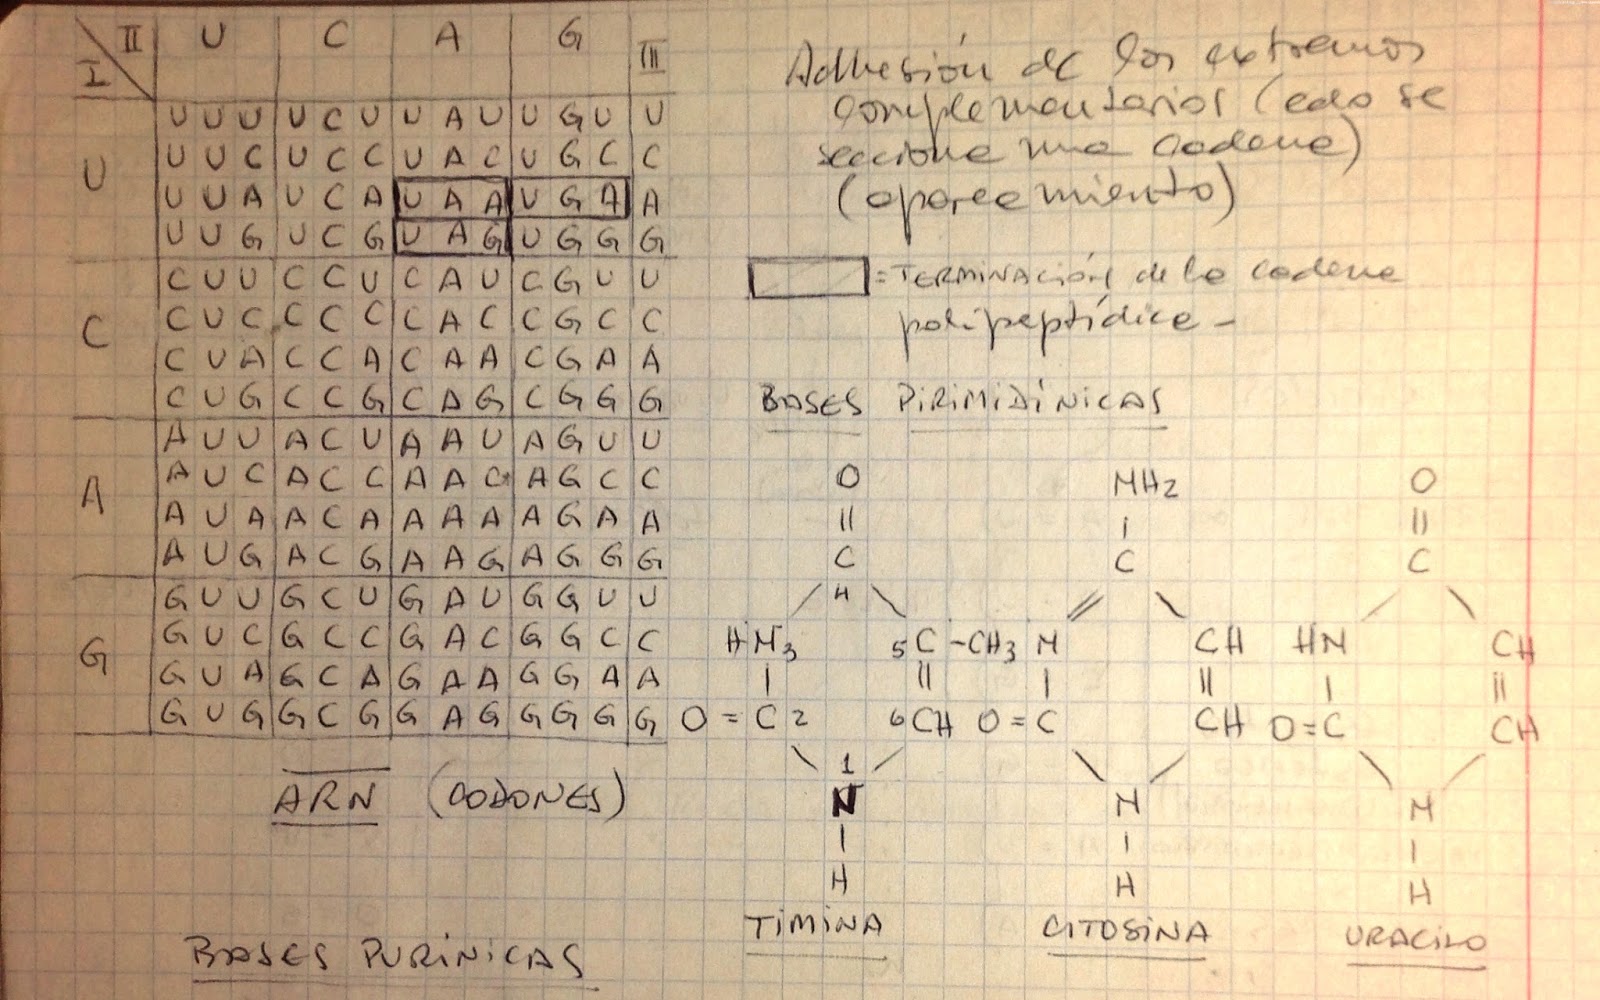 II U C A G III
I
UUU UCU UAU UGU U
UUC UCC UAC UGC C
U
UUA UCA UAA UGA A
UUG UCG UAG UGG G
CUU CCU CAU CGU U
CUC CCC CAC CGC C
C
CUA CCA CAA CGA A
CUG CCG CAG CGG G
AUU ACU AAU AGU U
AUC ACC AAC AGC C
A
AUA ACA AAA AGA A
AUG ACG AAG AGG G
GUU GCU GAU GGU U
GUC GCC GAC GGC C
G
GUA GCA GAA GGA A
GUG GCG GAG GGG G
ARN (CODONES)
BASES PURÍNICAS
Adhesión de los extremos
complementarios (cdo se
secciona una cadena)
(apareamiento)
= TERMINACIÓN de la cadena
polipeptídica -
BASES PIRIMIDÍNICAS
O
||
C
4
HN3 5C-CH3
| ||
O=C2 6CH
1
N
|
H
TIMINA
NH2
|
C
N CH
| ||
O=C CH
N
|
H
CITOSINA
O
||
C
HN CH
| ||
O=C CH
N
|
H
URACILO